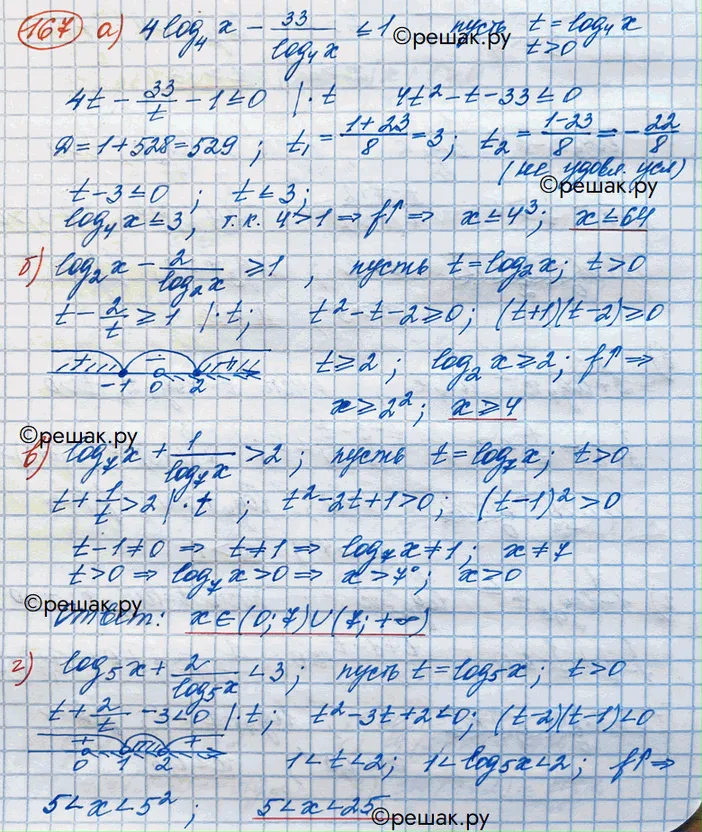 167 а) 4log₄x − 33/log₄x ≤ 1 ©решак.ру пусть t = log₄x
t>0
4t − 33/t − 1 ≤ 0 |·t 4t² − t − 33 ≤ 0
Д = 1 + 528 = 529 ; t₁ = (1+23)/8 = 3; t₂ = (1−23)/8 = −22/8
(не удовл. усл)
©решак.ру
t − 3 ≤ 0 ; t ≤ 3;
log₄x ≤ 3, т.к. 4>1 ⇒ f↑ ⇒ x ≤ 4³; x ≤ 64
б) log₂x − 2/log₂x ≥ 1 , пусть t = log₂x; t>0
t − 2/t ≥ 1 |·t; t² − t − 2 ≥ 0; (t+1)(t−2) ≥ 0
+ − +
−1 0 2 t ≥ 2 ; log₂x ≥ 2; f↑ ⇒
x ≥ 2²; x ≥ 4
©решак.ру
в) log₇x + 1/log₇x > 2 ; пусть t = log₇x; t>0
t + 1/t > 2 |·t ; t² − 2t + 1 > 0; (t−1)² > 0
t − 1 ≠ 0 ⇒ t ≠ 1 ⇒ log₇x ≠ 1; x ≠ 7
t>0 ⇒ log₇x > 0 ⇒ x > 7⁰; x > 0
©решак.ру
Ответ: x ∈ (0; 7) ∪ (7; +∞)
г) log₅x + 2/log₅x < 3; пусть t = log₅x; t>0
t + 2/t − 3 < 0 |·t; t² − 3t + 2 < 0; (t−2)(t−1) < 0
+ − +
0 1 2 1 < t < 2; 1 < log₅x < 2; f↑ ⇒
5 < x < 5² ; 5 < x < 25
©решак.ру